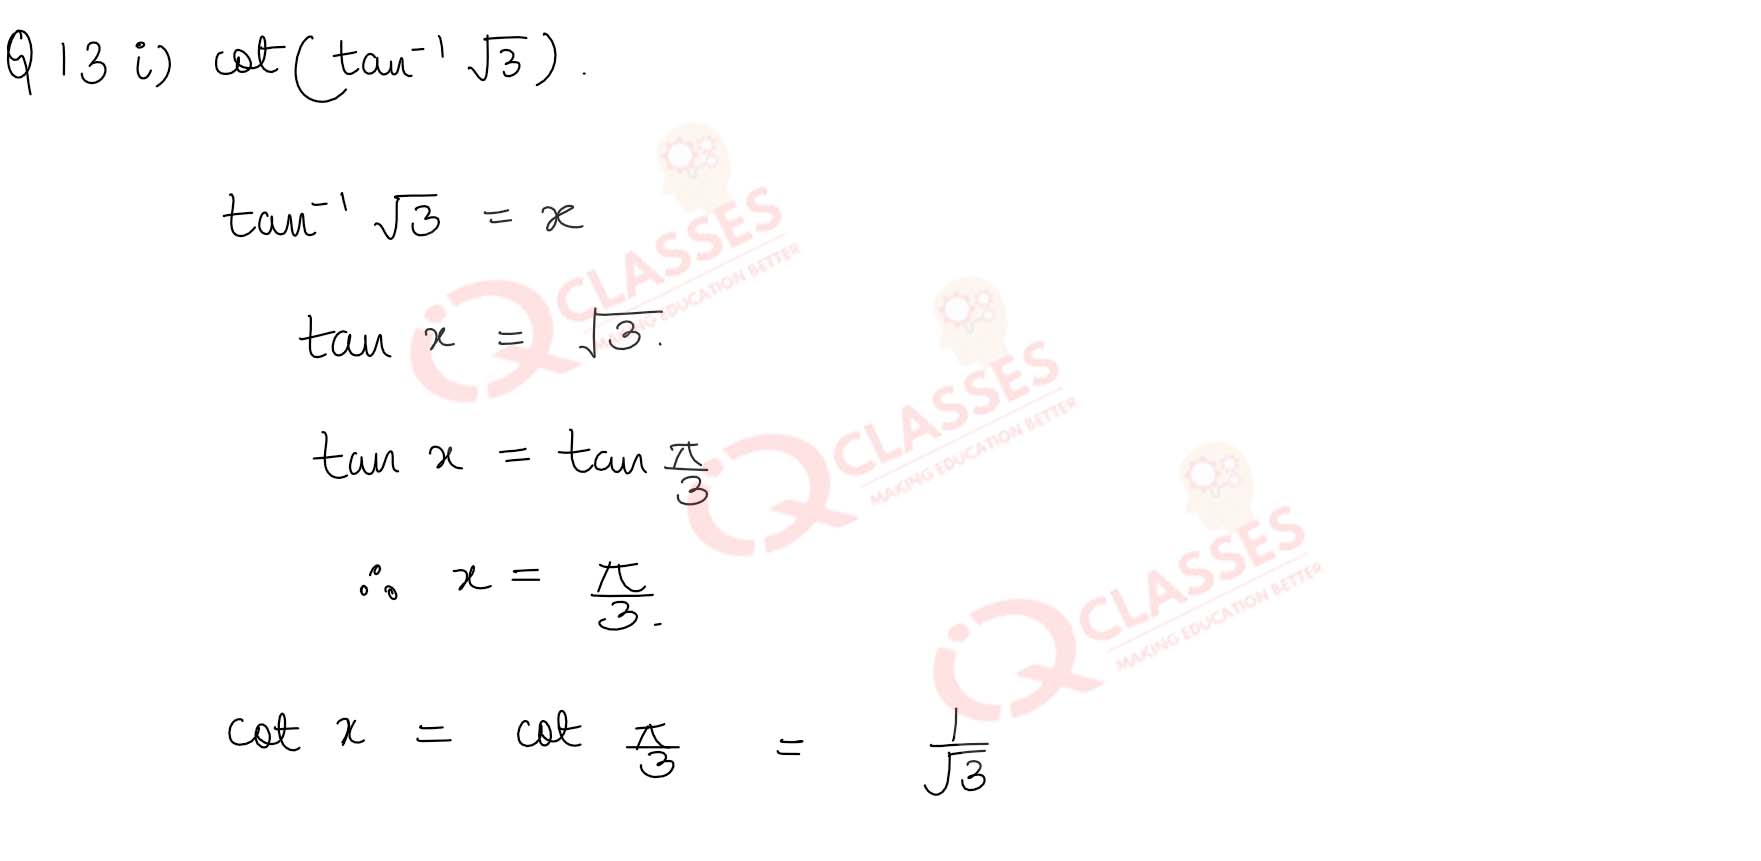 Q 13 i) cot(tan⁻¹ √3).
tan⁻¹ √3 = x
tan x = √3.
tan x = tan π/3
∴ x = π/3.
cot x = cot π/3 = 1/√3
iQ CLASSES
MAKING EDUCATION BETTER
iQ CLASSES
MAKING EDUCATION BETTER
iQ CLASSES
MAKING EDUCATION BETTER